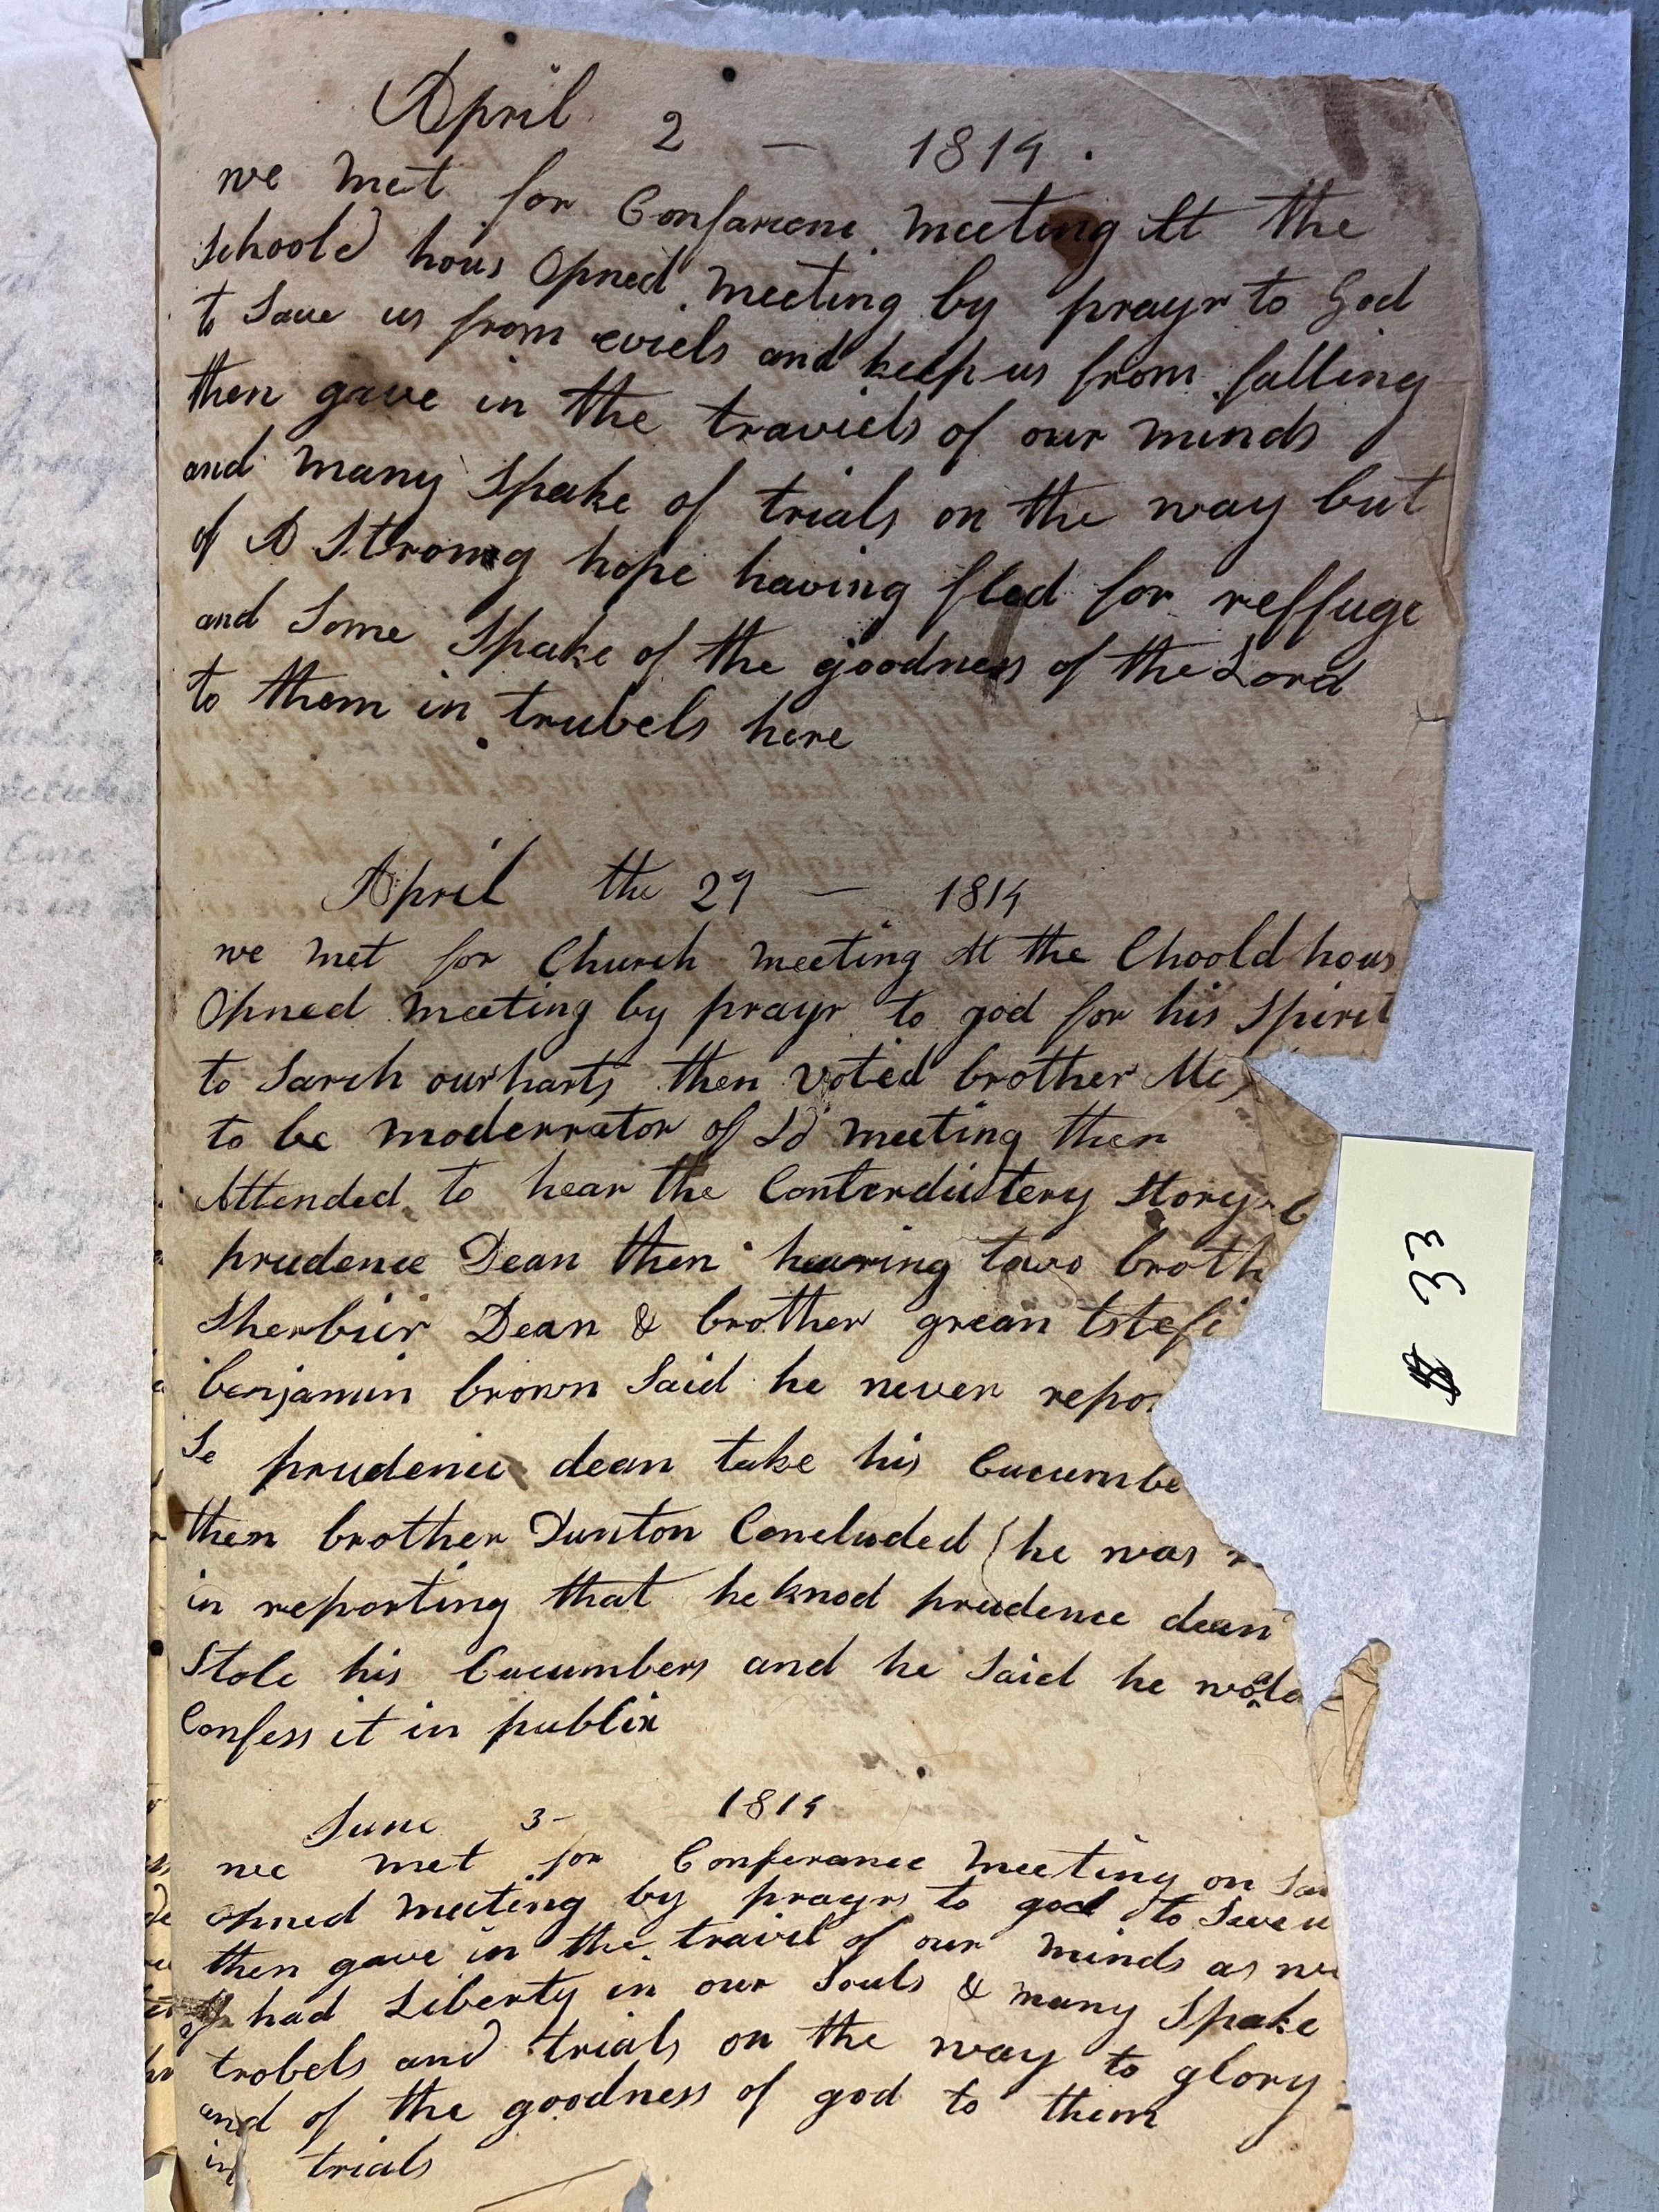 April 2 — 1814.
we met for Confarene meeting At the
Schoole hous Opned meeting by prayr to God
to Save us from eviels and keep us from falling
then gave in the traviels of our minds
and many Spake of trials on the way but
of A Strong hope having fled for reffuge
and Some Spake of the goodness of the Lord
to them in trubels here
April the 29 — 1814
we met for Church meeting At the Choold hous
Opned meeting by prayr to god for his Spirit
to Sarch our harts then voted brother
to be moderrator of Sd meeting then
Attended to hear the Conterdictery Story
prudence Dean then hearing towo broth
Dean & brother grean
benjamin brown Said he never repo
Se prudence dean take his Cucumbe
then brother Dunton Concluded he was
in reporting that he knod prudence dean
Stole his Cucumbers and he Said he
Confess it in publix
June 3- 1814
we met for Conferance meeting on
opned meeting by prayrs to god to Save u
then gave in the traviel of our minds as we
had Liberty in our Souls & many Spake
of trobels and trials on the way to glory
and of the goodness of god to them
in trials
$ 33